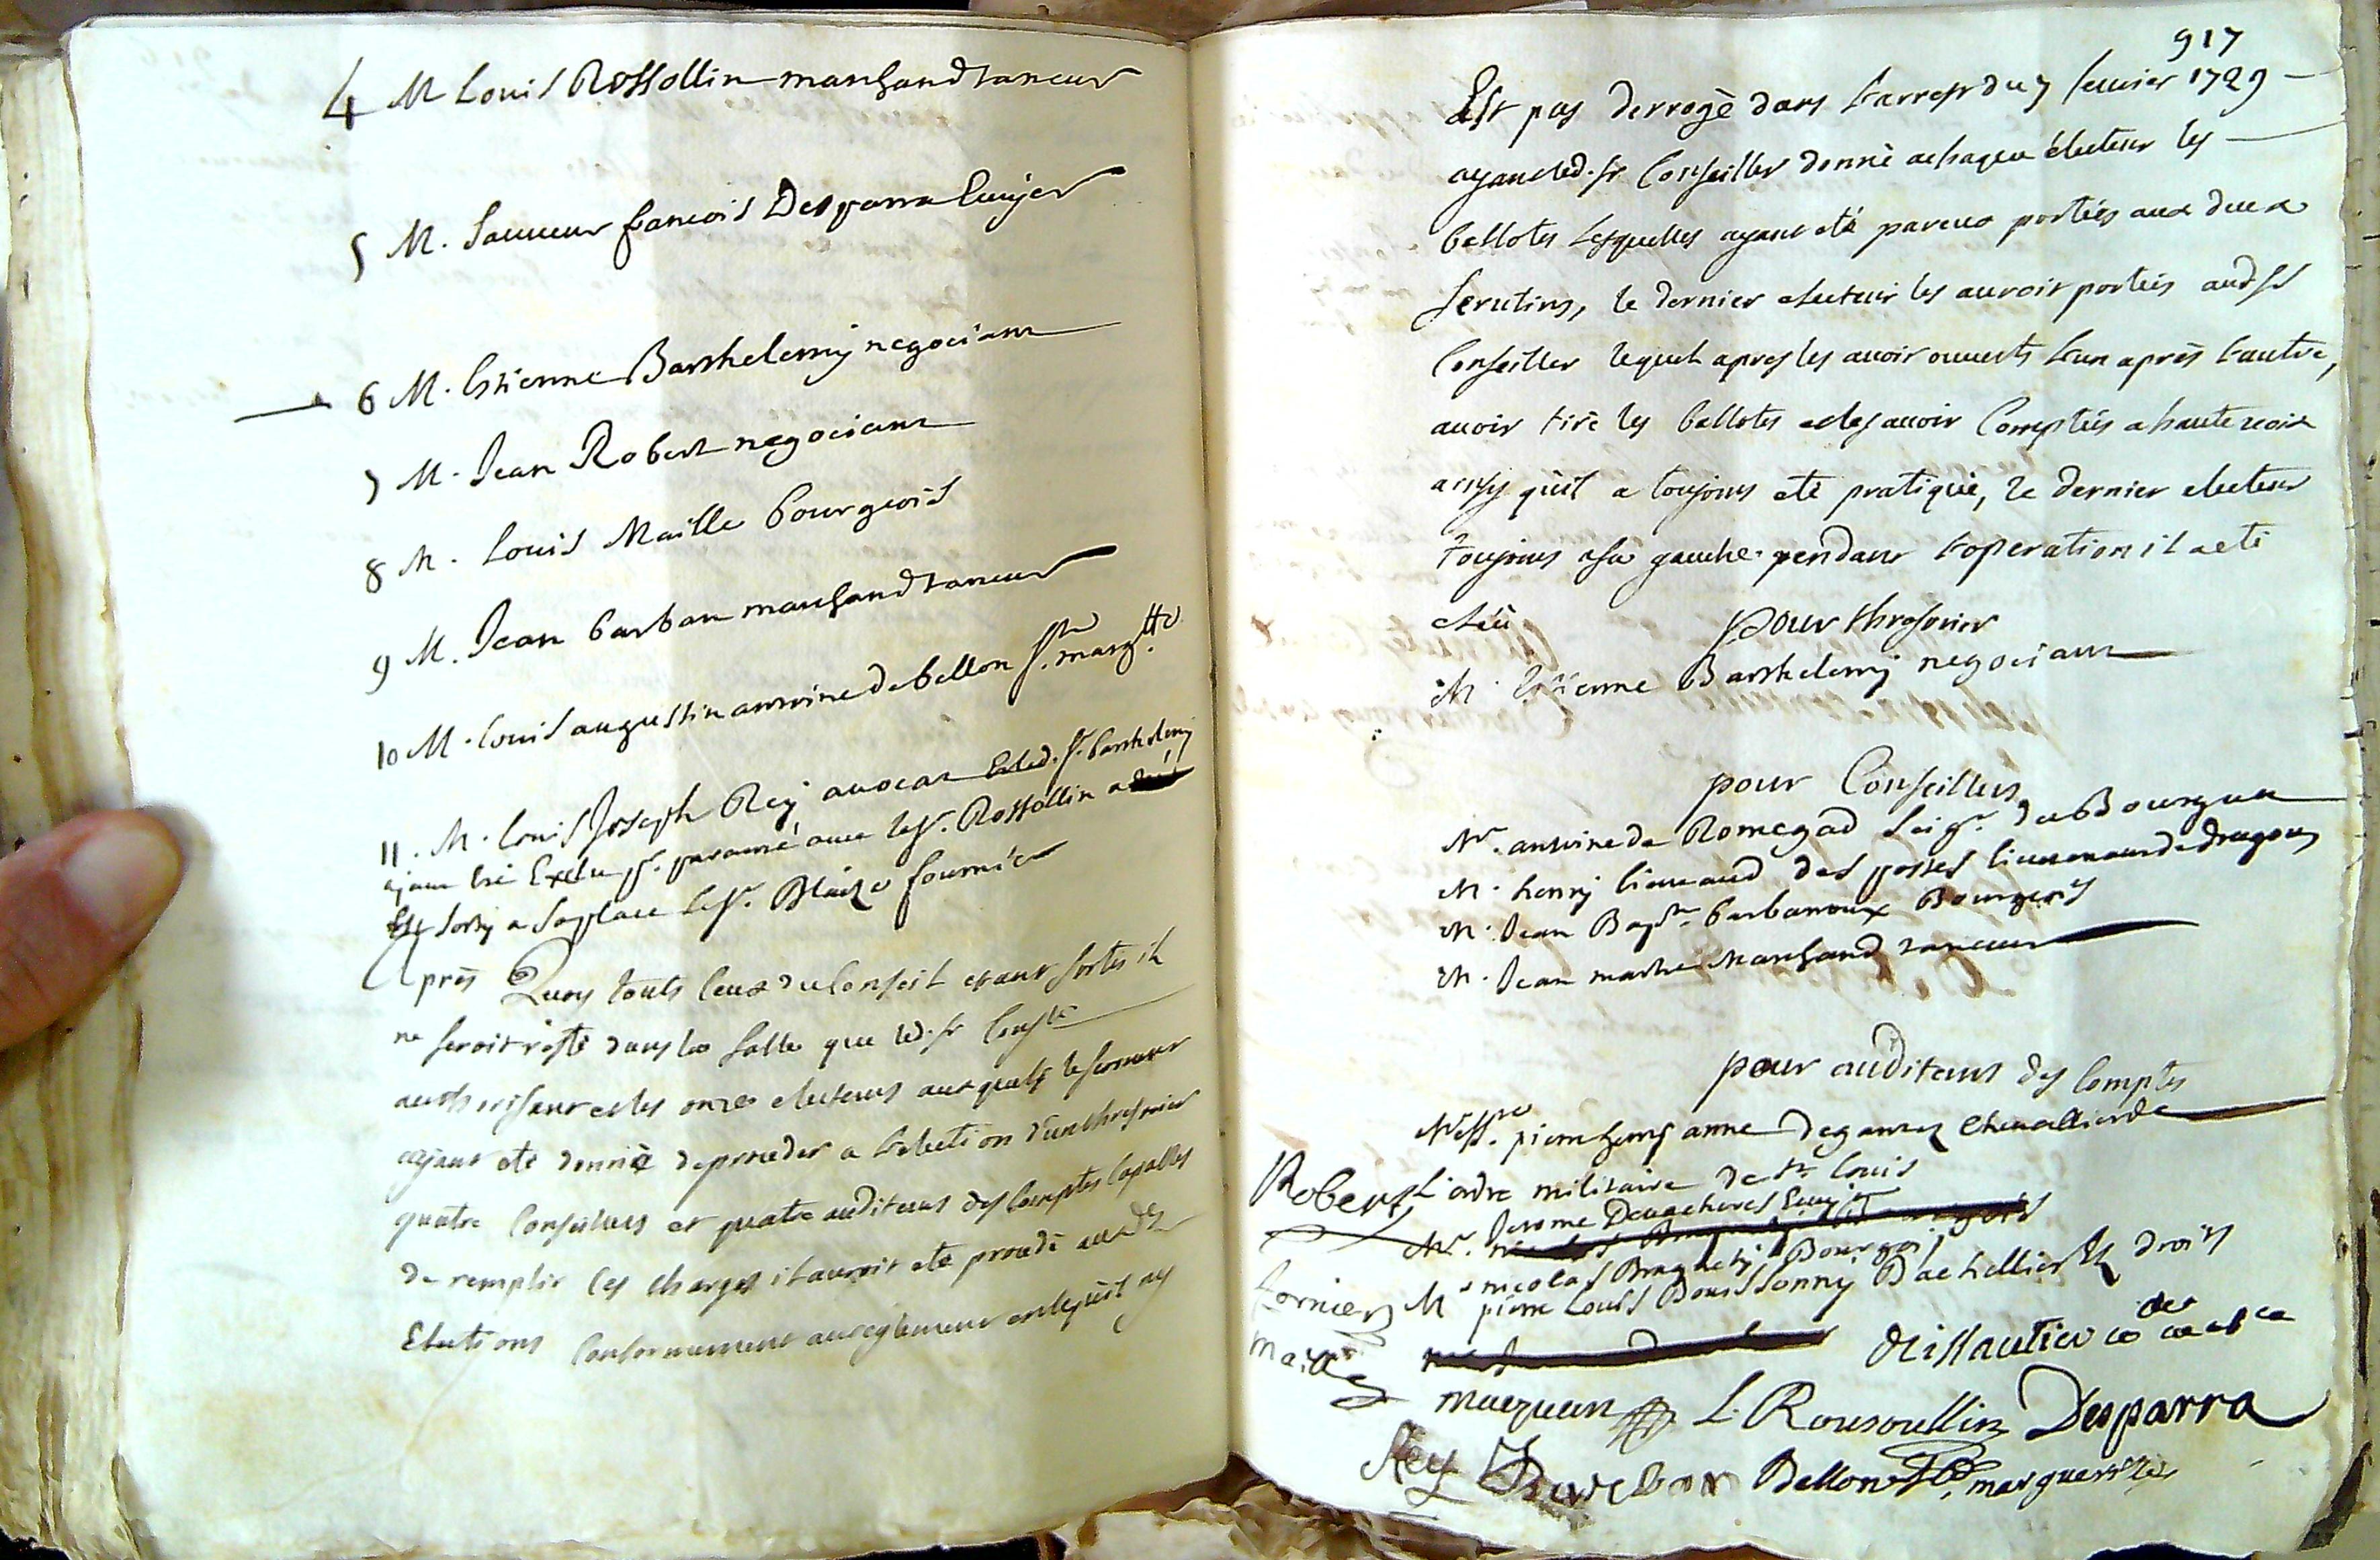 4 M Louis Rossollin marchand taneur
5 M. Sauveur francois Desparra Ecuyer
6 M. Estienne Barthelemy negociant
7 M. Jean Robert negociant
8 M. Louis Maille bourgeois
9 M. Jean barban marchand taneur
10 M. Louis augustin antoine de bellon Ste. margtte
11. M. Louis Joseph Rey avocat Et led. sr. barthelemy
ayant Eté Exclu pr. paranté avec le sr. Rossollin
Est sorty a sa place le sr. Blaize fournier
Après Quoy touts ceux du Conseil estant sortis il
ne seroit resté dans la salle que led. sr Conser
authorisant et les onze electeurs auxquels le serment
ayant eté donné de proceder a l'election d'un thresorier
quatre Conseillers et quatre auditeurs des Comptes Capables
de remplir les charges il auroit eté procedé auxdes
Elections Conformement au reglement en le quil ny
917
Est pas derrogé dans l'arrest du 7 fevrier 1729
ayant led. sr Conseiller donné a chaque électeur les
ballotes lesquelles ayant eté par eux portées aux deux
scrutins, le dernier electeur les auroit portées aud sr
Conseiller lequel apres les avoir ouverts l'un après l'autre,
avoir tiré les ballotes et les avoir Comptées a haute voix
ainsy qu'il a toujours eté pratiqué, le dernier electeur
toujours a sa gauche pendant l'operation il a eté
eleu
pour thresorier
M. Estienne Barthelemy negociant
pour Conseillers
Mr. antoine de Romegad seigr. du Bourguet
M. henry lieutaud des posses lieutenant de dragons
M. Jean Bapte. barbaroux Bourgeois
M. Jean marchand taneur
pour auditeurs des Comptes
Messre. pierre anne de gantez Chevallier de
L'ordre militaire de st. Louis
Mr. Jerome Ecuyer
M nicolas Bourgois
M pierre Louis Bouissonny Bachellier Es droits
Robert
fornier
Maille
L. Rousoullin Desparra
Rey Barban Bellon Ste. marguerite